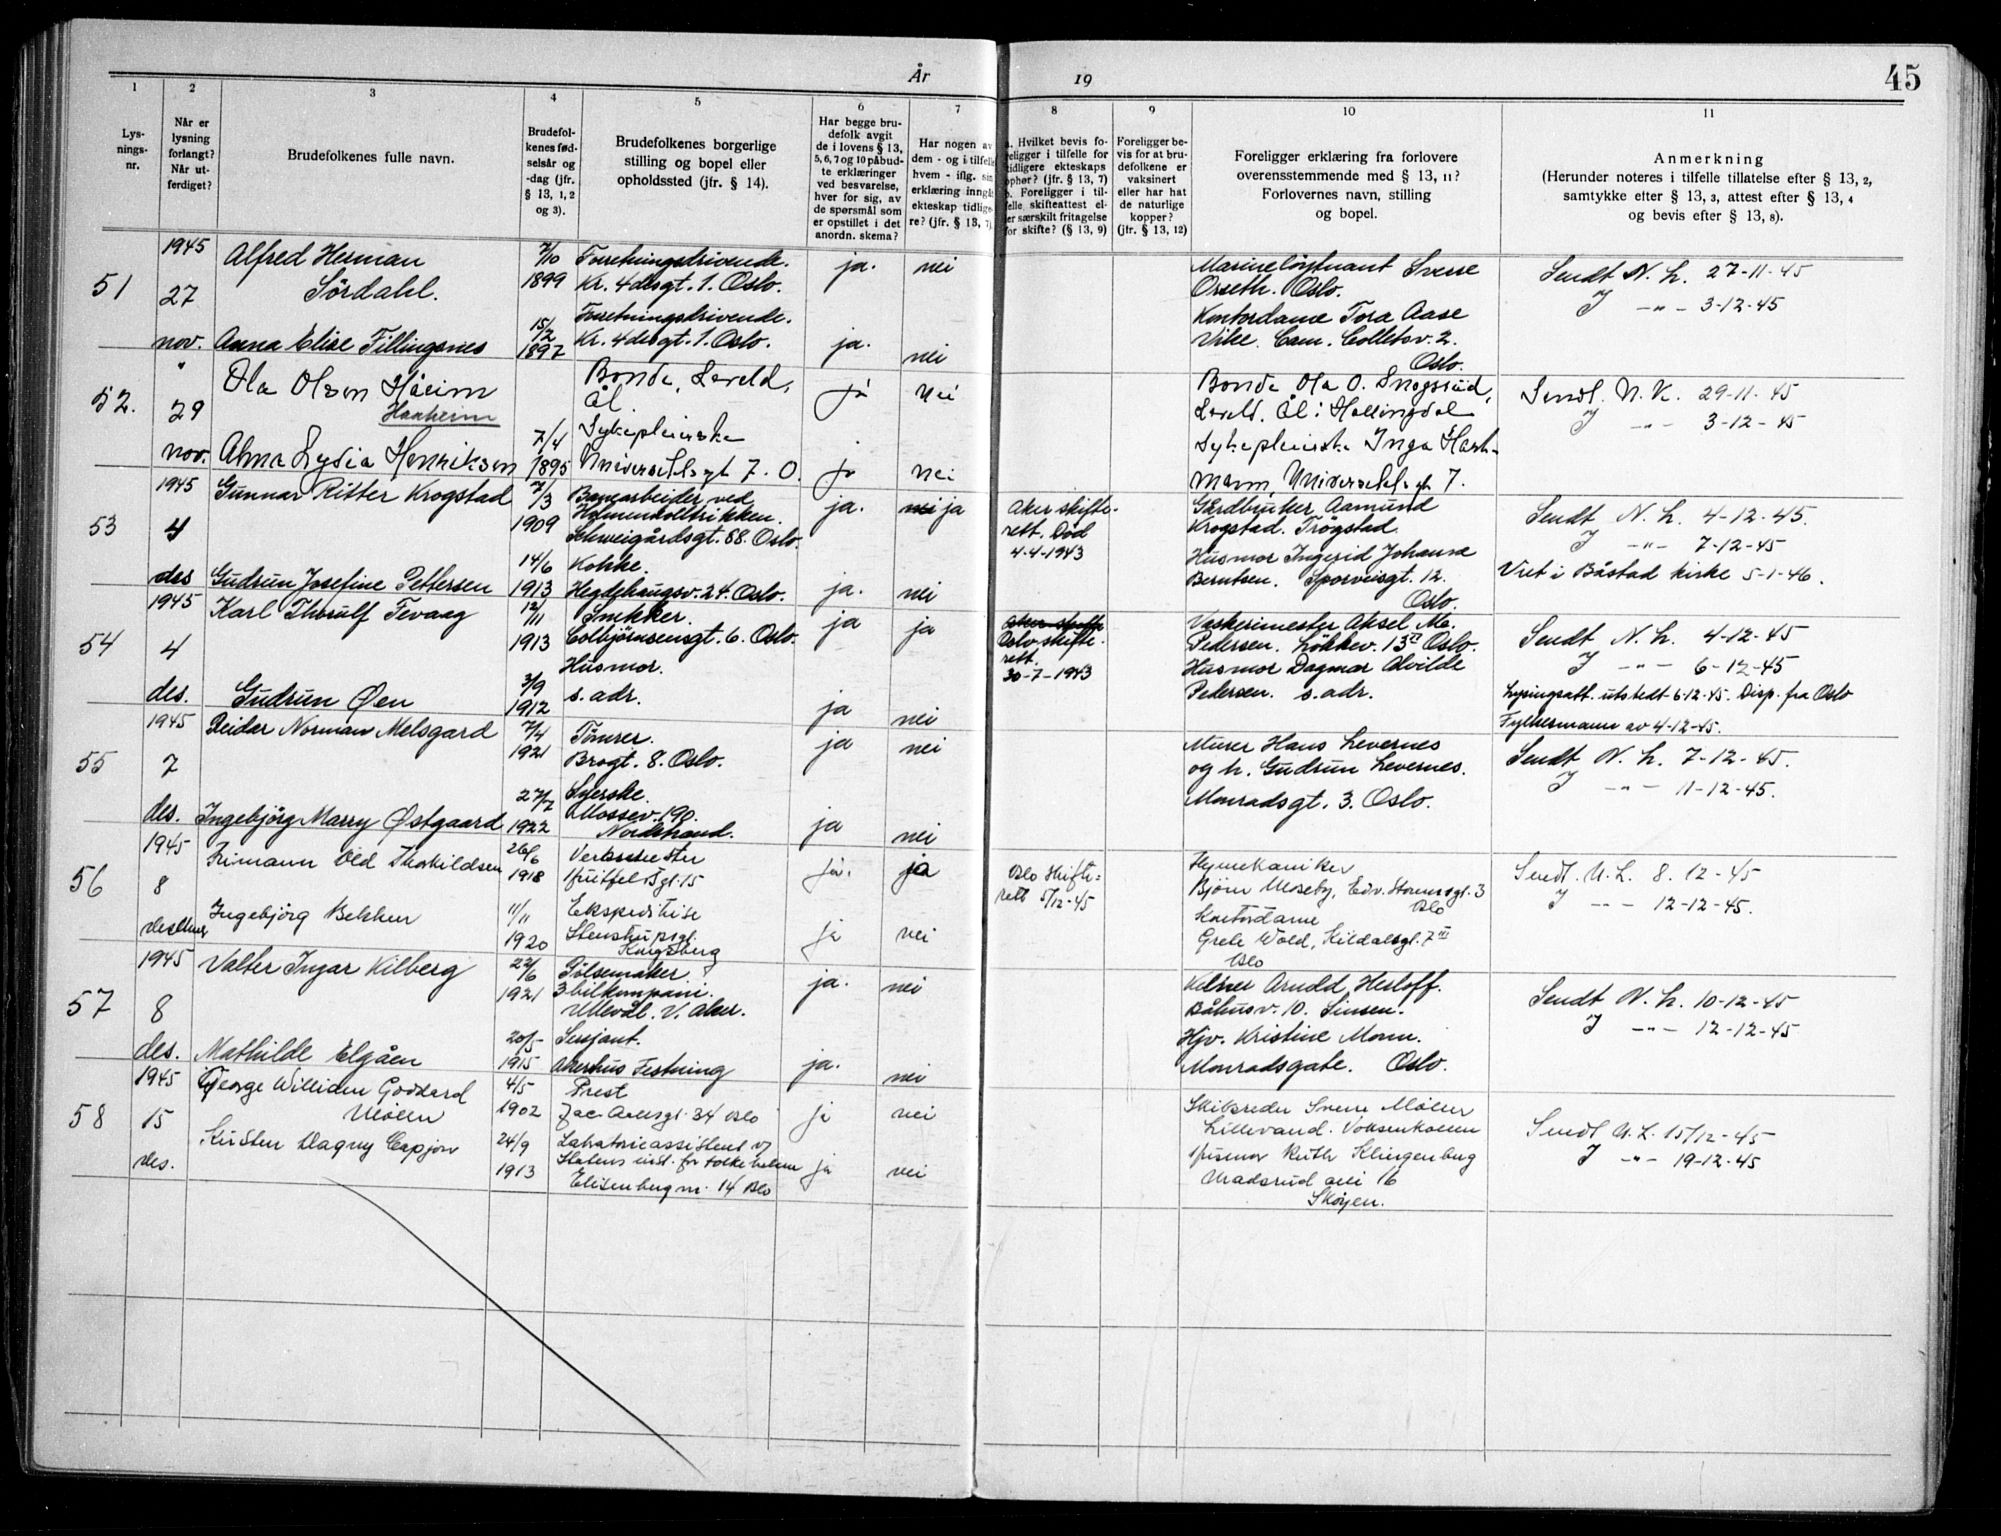 År 19 45
1 2 3 4 5 6 7 8 9 10 11
Lys-
nings-
nr.
Når er
lysning
forlangt?
Når ut-
ferdiget?
Brudefolkenes fulle navn.
Brudefol-
kenes fød-
selsår og
-dag (jfr.
§ 13, 1, 2
og 3).
Brudefolkenes borgerlige
stilling og bopel eller
opholdssted (jfr. § 14).
Har begge bru-
defolk avgit
de i lovens § 13,
5, 6, 7 og 10 påbud-
te erklæringer
ved besvarelse,
hver for sig, av
de spørsmål som
er opstillet i det
anordn. skema?
Har nogen av
dem - og i tilfelle
hvem - iflg. sin
erklæring inngåt
ekteskap tidlige-
re? (jfr. § 13, 7).
a. Hvilket bevis fo-
religger i tilfelle for
tidligere ekteskaps
ophør? (jfr. § 13, 7)
b. Foreligger i til-
felle skifteattest el-
ler særskilt fritagelse
for skifte? (§ 13, 9)
Foreligger be-
vis for at bru-
defolkene er
vaksinert
eller har hat
de naturlige
kopper?
(jfr. § 13, 12)
Foreligger erklæring fra forlovere
overensstemmende med § 13, 11?
Forlovernes navn, stilling
og bopel.
Anmerkning
(Herunder noteres i tilfelle tillatelse efter § 13, 2,
samtykke efter § 13, 3, attest efter § 13, 4
og bevis efter § 13, 8).
51
1945
27
nov.
Alfred Herman
Sördahl.
7/10
1899
Forretningsdrivende.
Kr. 4desgt. 1. Oslo.
ja. nei
Anna Elise Fillingsnes
15/2
1897
Forretningsdrivende.
Kr. 4desgt. 1. Oslo.
ja. nei
Marineløitnant Sverre
Orseth. Oslo.
Kontordame Tora Aase
Vike. Cam. Colletsv. 2.
Oslo.
Sendt N. L. 27-11-45
J -"- 3-12-45
52.
"
29
nov.
Ola Olsen Håeim
Haaheim
Bonde, Leveld,
Ål.
ja nei
Alma Lydia Henriksen
7/4
1895
Sykepleierske
Universitetsgt 7. O.
ja nei
Bonde Ola O. Snogsrud,
Leveld. Ål i Hallingdal
Sykepleierske Inga Hart-
mann, Universitetsgt 7.
Sendt. N. K. 29-11-45
J -"- 3-12-45
53
1945
4
des
Gunnar Ritter Krogstad
7/3
1909
Banearbeider ved
Holmenkolbrikken.
Schweigårdsgt. 88. Oslo.
ja. nei ja
Aker skifte-
rett. Död
4-4-1943
Gudrun Josefine Pettersen
14/6
1913
Kokke.
Hegdehaugsv. 24. Oslo.
ja. nei
Gårdbruker Aamund
Krogstad. Trögstad
Husmor Ingerid Johanne
Berntsen. Sporveisgt. 12.
Oslo.
Sendt N. L. 4-12-45.
J -"- 7-12-45
Viet i Båstad kirke 5-1-46.
54
1945
4
des.
Karl Thorulf Tevaag
12/11
1913
Snekker.
Colbjörnsensgt. 6. Oslo.
ja ja
Aker skifte
Oslo skifte-
rett.
30-7-1943
Gudrun Øen
3/9
1912
Husmor.
s. adr.
ja nei
Vaskerimester Aksel Ma.
Pedersen. Lökkev. 13 II Oslo.
Husmor Dagmar Alvilde
Pedersen. s. adr.
Sendt N. L. 4-12-45
J -"- 6-12-45
Lysingsatt. utstedt 6-12-45. Disp. fra Oslo
Fylkesmann av 4-12-45.
55
1945
7
des.
Reidar Norman Melsgard
7/4
1921
Tömrer.
Brogt. 8. Oslo.
ja nei
Ingebjörg Marry Östgaard
27/7
1922
Syerske.
Mossev. 190.
Nordstrand.
ja nei
Murer Hans Levernes
og h. Gudrun Levernes.
Monradsgt. 3. Oslo.
Sendt N. L. 7-12-45.
J -"- 11-12-45.
56
1945
8
desember
Frimann Old Thokildsen
26/6
1918
Verksmester
Huitfeldtsgt. 15
ja. ja
Oslo Skifte-
rett 5/12-45
Ingebjörg Bekken
11/11
1920
Ekspeditrise
Stenstupsgt.
Kongsberg
ja nei
Flymekaniker
Bjørn Moseby, Edv. Stormsgt. 3
Oslo
Kontordame
Grete Wold, Kildalsgt. 7 III
Oslo
Sendt. N. L. 8. 12-45
J -"- 12-12-45.
57
1945
8
des.
Valter Ingar Kilberg
22/6
1921
Pölsemaker
3 bilkompani.
Ullevål. V. Aker.
ja. nei
Mathilde Elgåen
20/5-
1915
Sersjant.
Akershus Festning
ja. nei
Kelner Arndd Herloff.
Båhusv. 10. Sinsen.
Hjv. Kristine Monn.
Monradsgate. Oslo.
Sendt N. L. 10-12-45
J -"- 12-12-45
58
1945
15
des.
George Williden Goddard
Möller
4/5
1902
Prest
Jac. Aallsgt. 34 Oslo
ja nei
Kirsten Dagny Capjon
24/9
1913
Labratorieassistent v/
Statens inst. for folkehelsen
Elisenbergvn. 14 Oslo
ja nei
Skibsreder Sverre Möller
Lillevand. Voksenkollen
Husmor Ruth Klingenberg
Madserud alle 16
Skøyen.
Sendt N. L. 15/12-45
J -"- 19-12-45